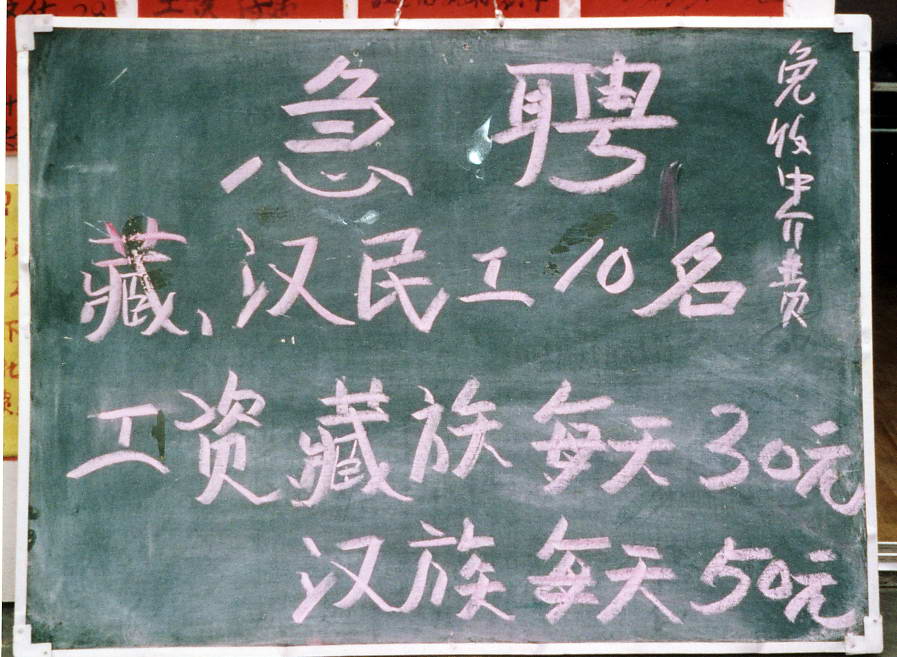 急聘
藏、汉民工10名
工资藏族每天30元
汉族每天50元
免收中介费